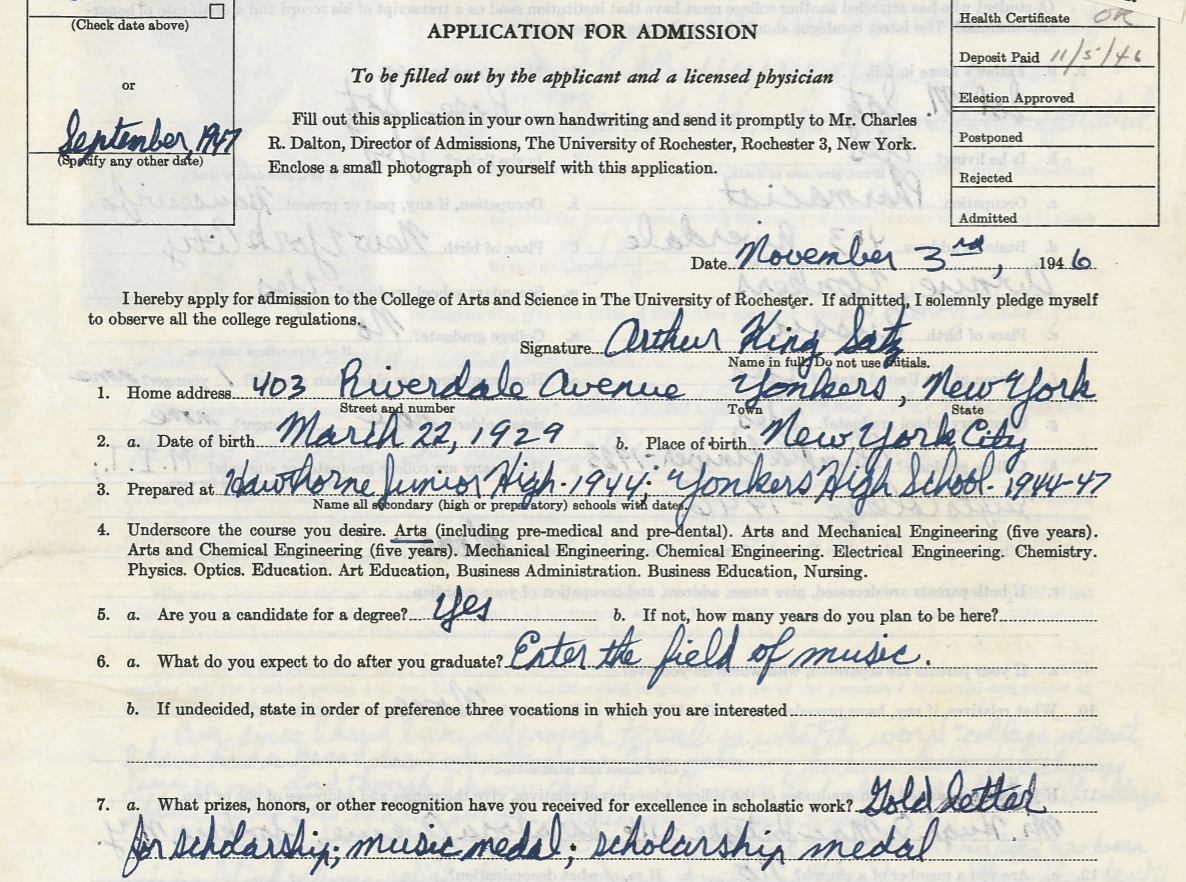 (Check date above)
or
September, 1947
(Specify any other date)
APPLICATION FOR ADMISSION
To be filled out by the applicant and a licensed physician
Fill out this application in your own handwriting and send it promptly to Mr. Charles
R. Dalton, Director of Admissions, The University of Rochester, Rochester 3, New York.
Enclose a small photograph of yourself with this application.
Health Certificate OK
Deposit Paid 11/5/46
Election Approved
Postponed
Rejected
Admitted
Date November 3rd, 1946
I hereby apply for admission to the College of Arts and Science in The University of Rochester. If admitted, I solemnly pledge myself
to observe all the college regulations.
Signature Arthur King Satz
Name in full. Do not use initials.
1. Home address 403 Riverdale Avenue Yonkers, New York
Street and number Town State
2. a. Date of birth March 22, 1929 b. Place of birth New York City
3. Prepared at Hawthorne Junior High - 1944; Yonkers High School - 1944-47
Name all secondary (high or preparatory) schools with dates.
4. Underscore the course you desire. Arts (including pre-medical and pre-dental). Arts and Mechanical Engineering (five years).
Arts and Chemical Engineering (five years). Mechanical Engineering. Chemical Engineering. Electrical Engineering. Chemistry.
Physics. Optics. Education. Art Education, Business Administration. Business Education, Nursing.
5. a. Are you a candidate for a degree? Yes b. If not, how many years do you plan to be here?
6. a. What do you expect to do after you graduate? Enter the field of music.
b. If undecided, state in order of preference three vocations in which you are interested
7. a. What prizes, honors, or other recognition have you received for excellence in scholastic work? Gold Letter
for scholarship; music medal; scholarship medal